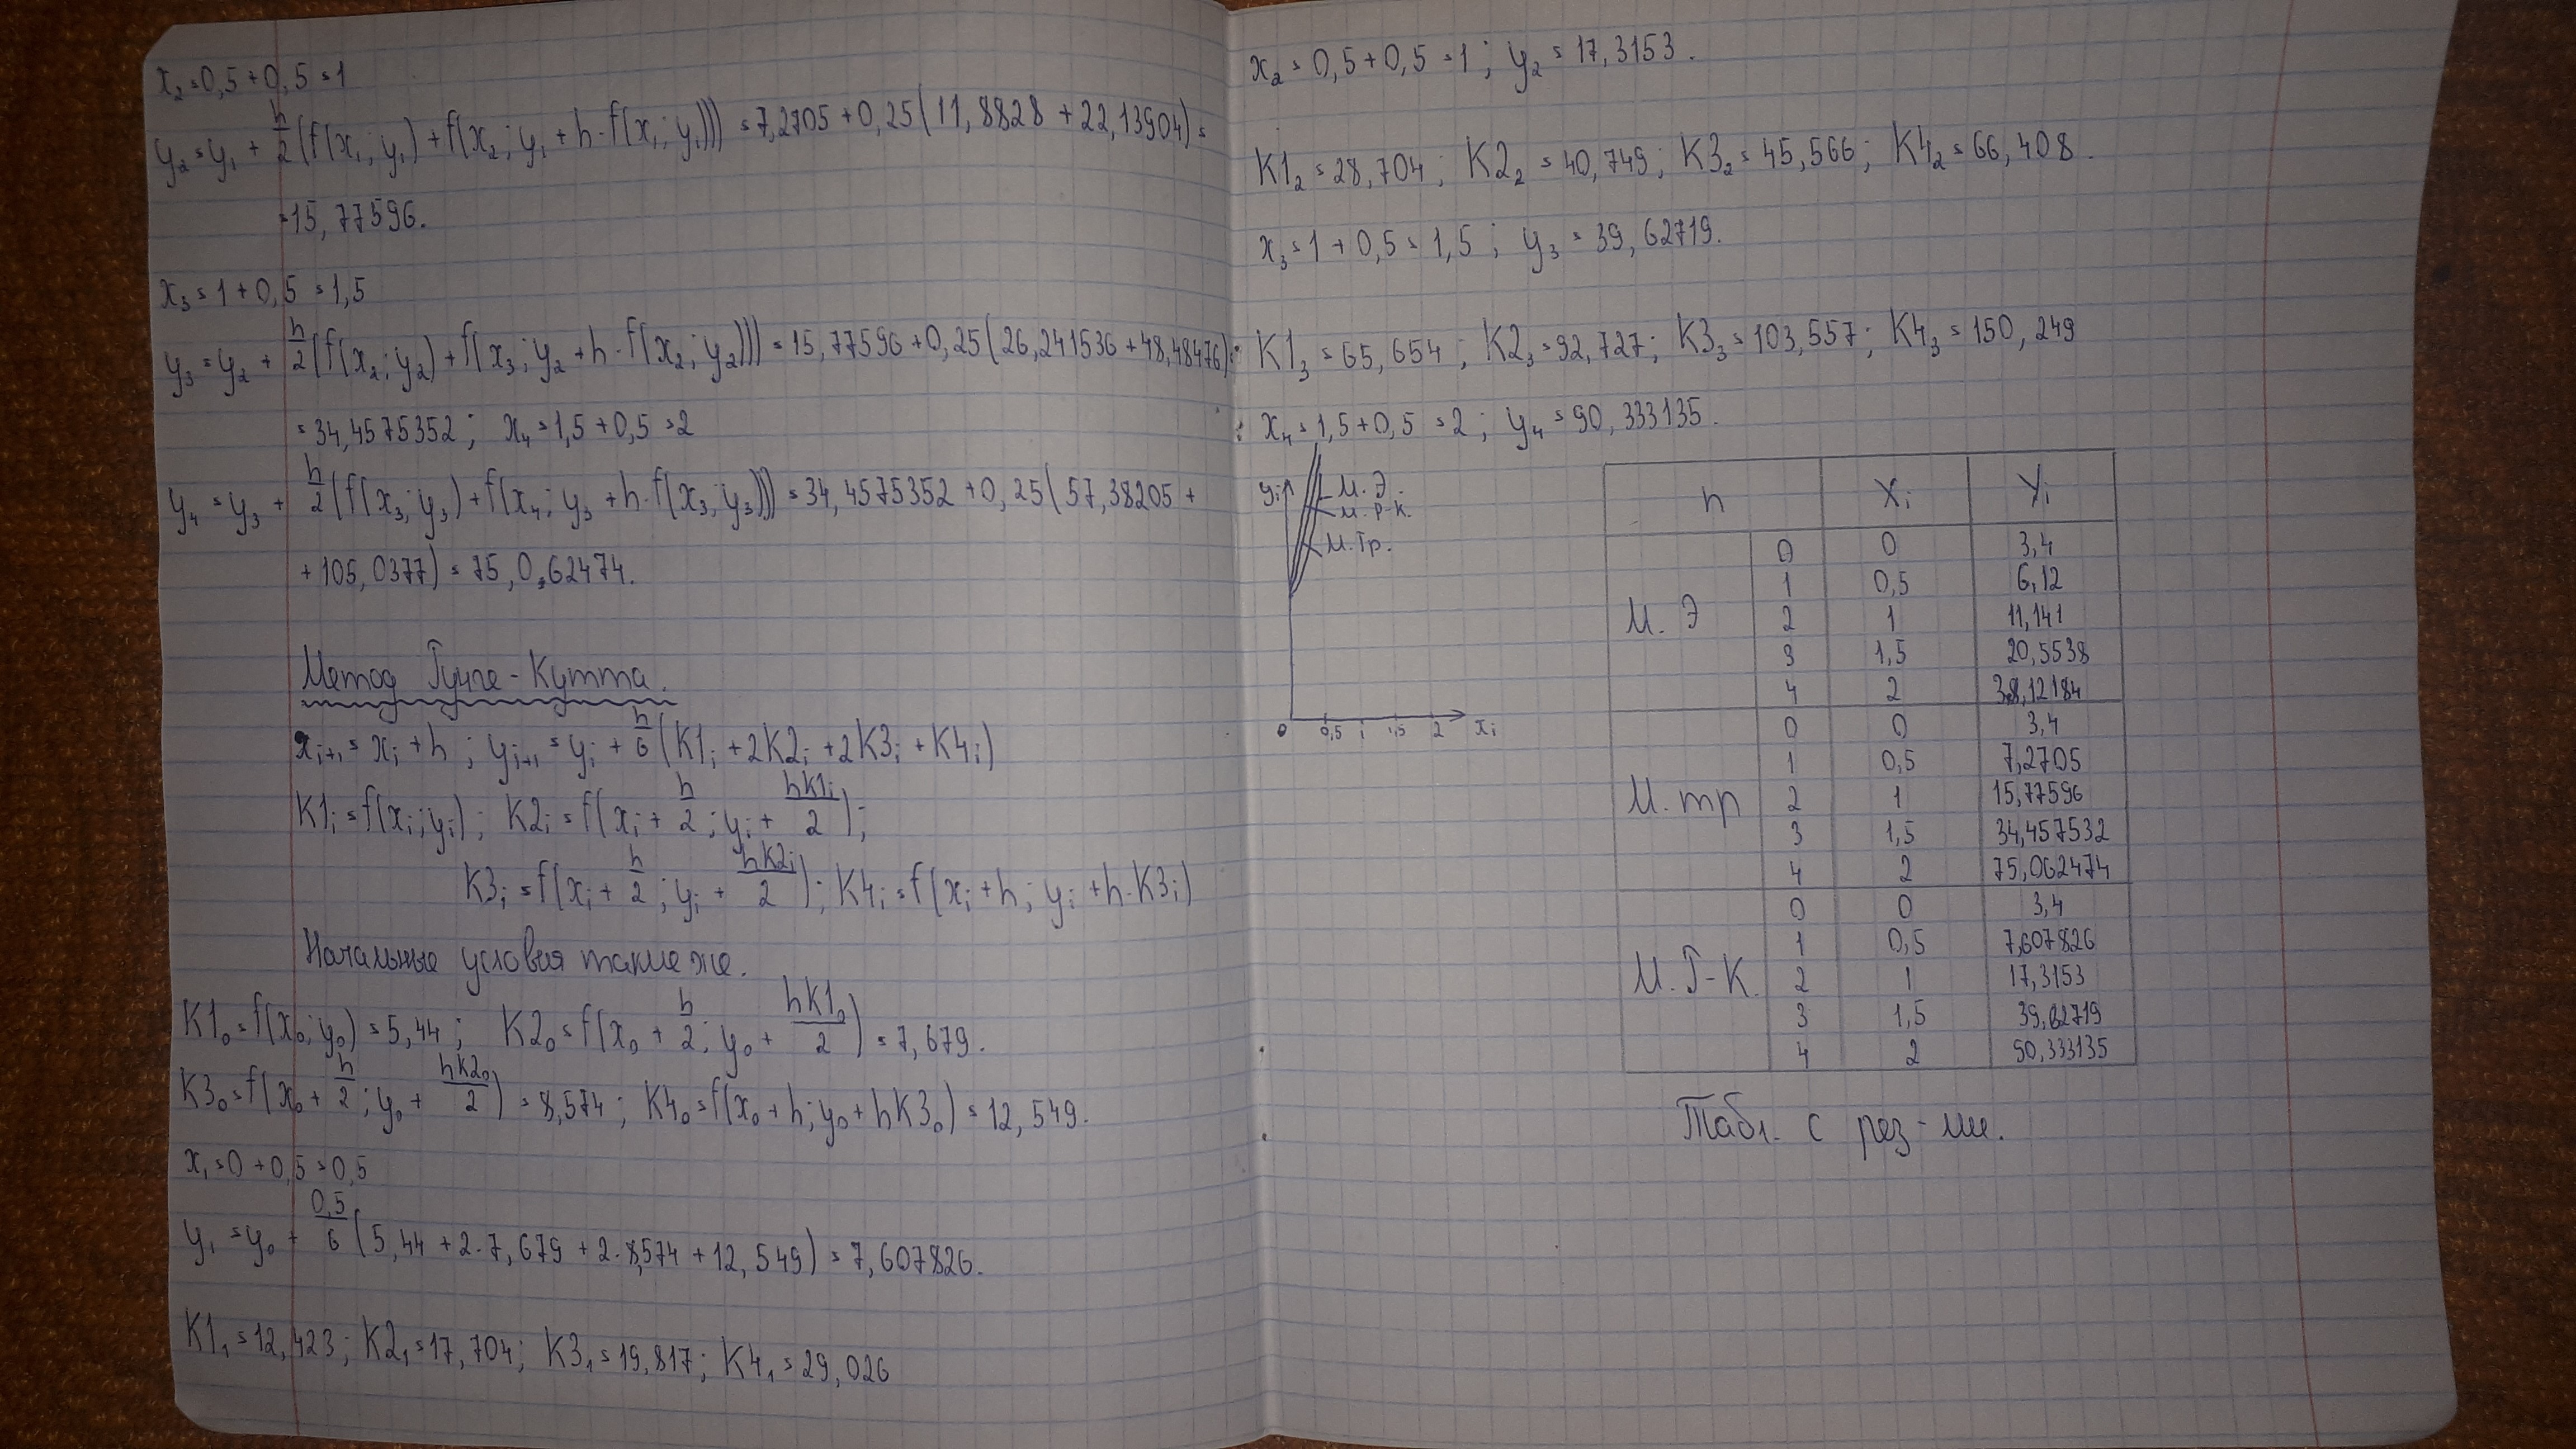 x₂=0,5+0,5=1
y₂=y₁+h/2(f(x₁;y₁)+f(x₂;y₁+h·f(x₁;y₁)))=7,2705+0,25(11,8828+22,13904)=
=15,77596.
x₃=1+0,5=1,5
y₃=y₂+h/2(f(x₂;y₂)+f(x₃;y₂+h·f(x₂;y₂)))=15,77596+0,25(26,241536+48,48476)=
=34,4575352; x₄=1,5+0,5=2
y₄=y₃+h/2(f(x₃;y₃)+f(x₄;y₃+h·f(x₃;y₃)))=34,4575352+0,25(57,38205+
+105,0377)=75,062474.
Метод Рунге-Кутта.
xᵢ₊₁=xᵢ+h; yᵢ₊₁=yᵢ+h/6(K1ᵢ+2K2ᵢ+2K3ᵢ+K4ᵢ)
K1ᵢ=f(xᵢ;yᵢ); K2ᵢ=f(xᵢ+h/2;yᵢ+hK1ᵢ/2);
K3ᵢ=f(xᵢ+h/2;yᵢ+hK2ᵢ/2); K4ᵢ=f(xᵢ+h;yᵢ+h·K3ᵢ)
Начальные условия такие же.
K1₀=f(x₀;y₀)=5,44; K2₀=f(x₀+h/2;y₀+hK1₀/2)=7,679.
K3₀=f(x₀+h/2;y₀+hK2₀/2)=8,574; K4₀=f(x₀+h;y₀+hK3₀)=12,549.
x₁=0+0,5=0,5
y₁=y₀+0,5/6(5,44+2·7,679+2·8,574+12,549)=7,607826.
K1₁=12,423; K2₁=17,704; K3₁=19,817; K4₁=29,026
x₂=0,5+0,5=1; y₂=17,3153.
K1₂=28,704; K2₂=40,749; K3₂=45,566; K4₂=66,408.
x₃=1+0,5=1,5; y₃=39,62719.
K1₃=65,654; K2₃=92,727; K3₃=103,557; K4₃=150,249
x₄=1,5+0,5=2; y₄=90,333135.
yᵢ
М.Э.
М.Р-К.
М.Тр.
0 0,5 1 1,5 2 xᵢ
n Xᵢ Yᵢ
М.Э
0 0 3,4
1 0,5 6,12
2 1 11,141
3 1,5 20,5538
4 2 38,12184
М.тр
0 0 3,4
1 0,5 7,2705
2 1 15,77596
3 1,5 34,457532
4 2 75,062474
М.Р-К.
0 0 3,4
1 0,5 7,607826
2 1 17,3153
3 1,5 39,62719
4 2 90,333135
Табл. с рез-ми.